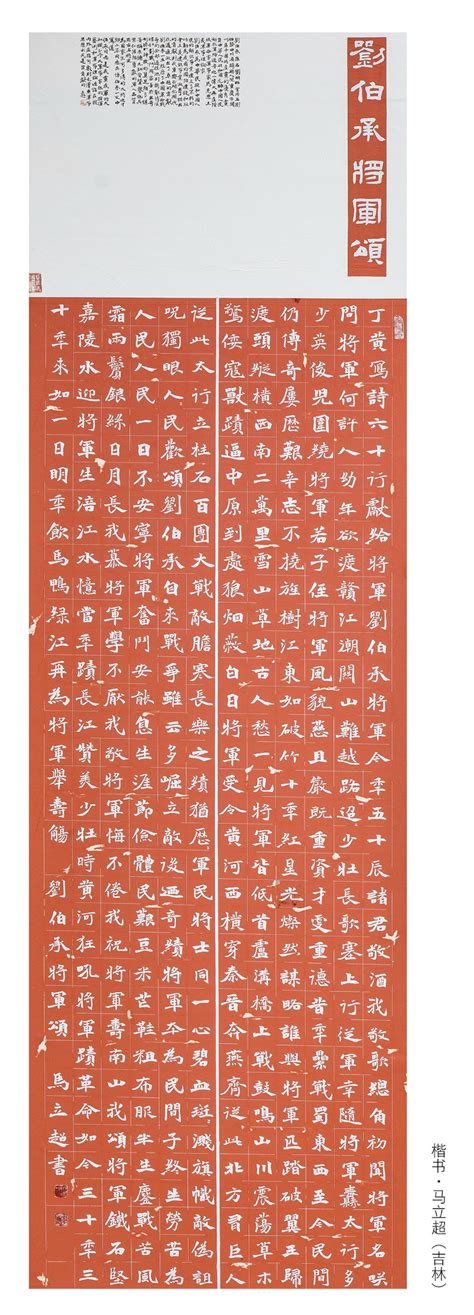 劉伯承將軍頌
丁黄寫詩六十行獻給將軍劉伯承將軍今年五十辰諸君敬酒我敬歌總角初聞將軍名咲
問將軍何許人幼年欲渡贛江潮關山難越路迢少壯長歌塞上行從軍幸隨將軍纛太行多
少英俊児圍繞將軍若子侄將軍風貌慈且嚴既重資才更重德昔年鏖戰蜀東西至今民間
仍傳奇屢歷艱辛志不撓旌樹江東如破竹十年紅星光燦然謀略誰與將軍匹踏破翼王歸
渡頭縱橫西南二萬里雪山草地古人愁一見將軍皆低首盧溝橋上戰鼓鳴山川震蕩草木
驚倭寇獸蹟逼中原到處狼烟蔽白日將軍受令黄河西橫穿秦晉奔燕齊從此北方有巨人
從此太行立柱石百團大戰敵膽寒長樂之績猶歷軍民將士同一心碧血斑濺旗幟敵偽詛
呪獨眼人人民歡頌劉伯承自來戰爭雖云多崛立敵後迺奇績將軍夲為民間子終生勞苦為
人民人民一日不安寧將軍奮鬥安能息生涯節儉體民艱豆米芒鞋粗布服半生鏖戰苦風
霜雨鬢銀絲日月長我慕將軍學不厭我敬將軍悔不倦我祝將軍壽南山我頌將軍鐵石堅
嘉陵水迎將軍生涪江水憶當年蹟長江贊美少壯時黄河狂吼將軍蹟革命如今三十年三
十年來如一日明年飲馬鴨綠江再為將軍舉壽觴 劉伯承將軍頌 馬立超書
楷书·马立超（吉林）